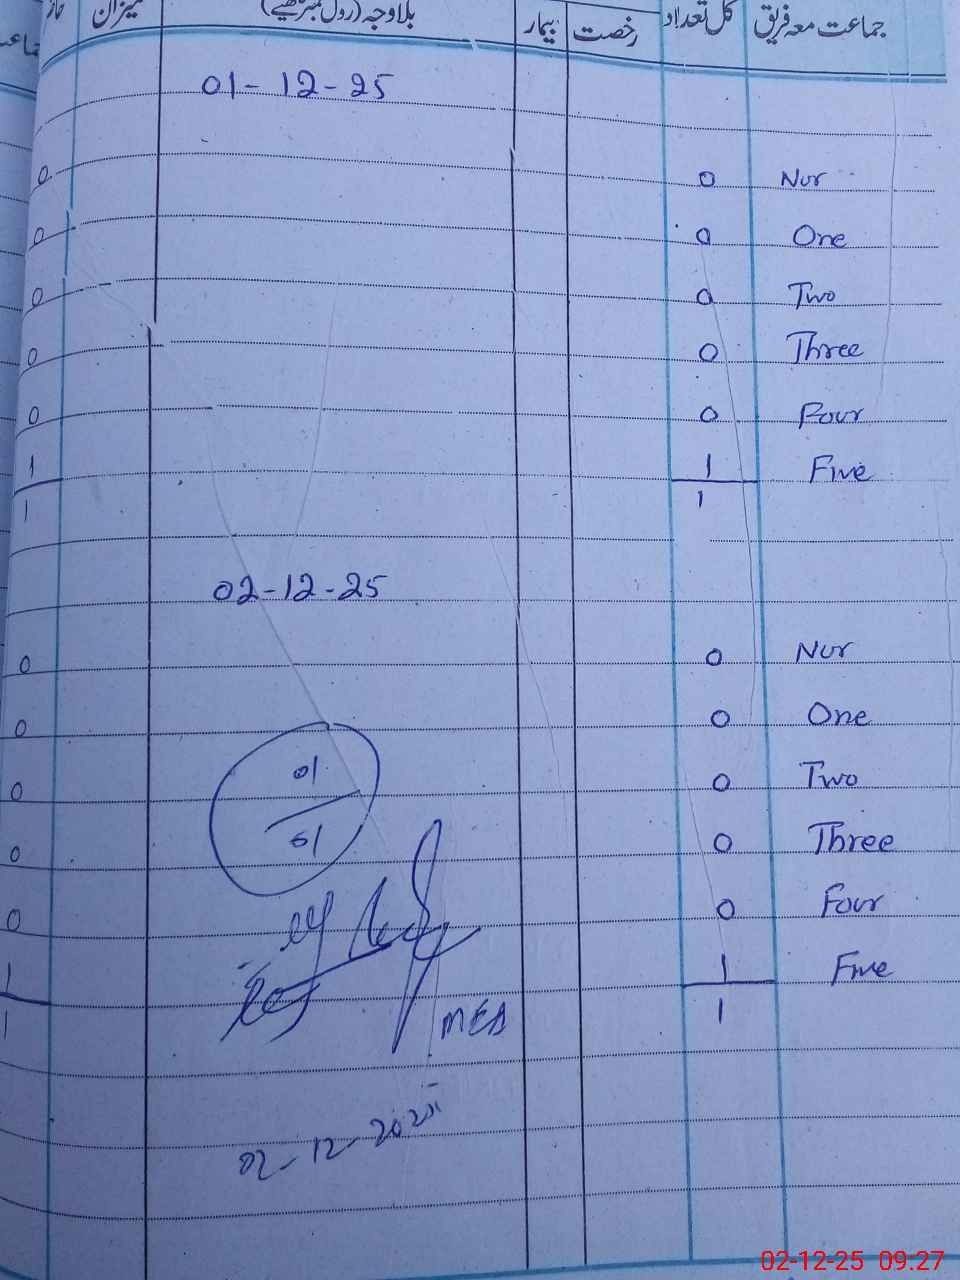 جماعت معہ فریق کل تعداد رخصت بیمار بلاوجہ (رول نمبر لکھیے) میزان
01-12-25
Nur 0 0
One 0 0
Two 0 0
Three 0 0
Four 0 0
Five 1 1
1 1
02-12-25
Nur 0 0
One 0 0
Two 0 0
Three 0 0
Four 0 0
Five 1 1
1 1
01
01
MEA
02-12-2025
02-12-25 09:27